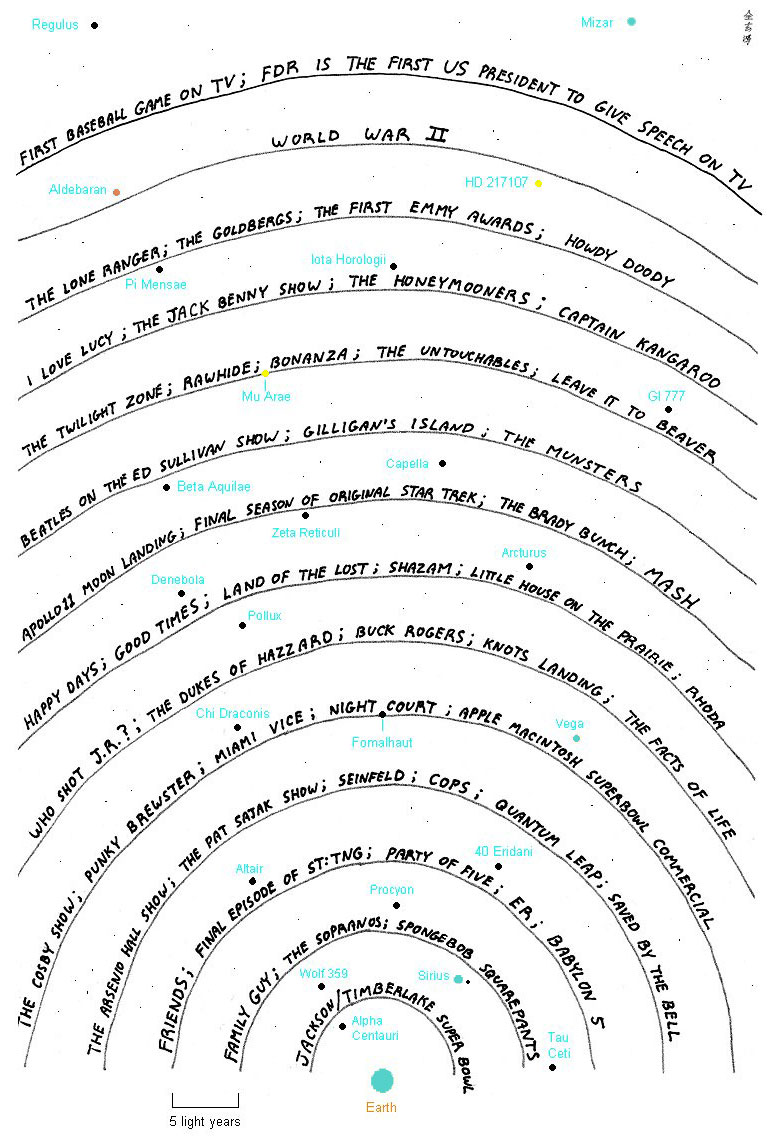 Regulus
Mizar
全玄澤
FIRST BASEBALL GAME ON TV; FDR IS THE FIRST US PRESIDENT TO GIVE SPEECH ON TV
WORLD WAR II
Aldebaran
HD 217107
THE LONE RANGER; THE GOLDBERGS; THE FIRST EMMY AWARDS; HOWDY DOODY
Iota Horologii
Pi Mensae
I LOVE LUCY; THE JACK BENNY SHOW; THE HONEYMOONERS; CAPTAIN KANGAROO
THE TWILIGHT ZONE; RAWHIDE; BONANZA; THE UNTOUCHABLES; LEAVE IT TO BEAVER
Mu Arae
Gl 777
BEATLES ON THE ED SULLIVAN SHOW; GILLIGAN'S ISLAND; THE MUNSTERS
Capella
Beta Aquilae
APOLLO 11 MOON LANDING; FINAL SEASON OF ORIGINAL STAR TREK; THE BRADY BUNCH; MASH
Zeta Reticuli
Arcturus
Denebola
HAPPY DAYS; GOOD TIMES; LAND OF THE LOST; SHAZAM; LITTLE HOUSE ON THE PRAIRIE; RHODA
Pollux
WHO SHOT J.R.?; THE DUKES OF HAZZARD; BUCK ROGERS; KNOTS LANDING; THE FACTS OF LIFE
Chi Draconis
Vega
Fomalhaut
THE COSBY SHOW; PUNKY BREWSTER; MIAMI VICE; NIGHT COURT; APPLE MACINTOSH SUPERBOWL COMMERCIAL
THE ARSENIO HALL SHOW; THE PAT SAJAK SHOW; SEINFELD; COPS; QUANTUM LEAP; SAVED BY THE BELL
Altair
40 Eridani
FRIENDS; FINAL EPISODE OF ST:TNG; PARTY OF FIVE; ER; BABYLON 5
Procyon
FAMILY GUY; THE SOPRANOS; SPONGEBOB SQUAREPANTS
Wolf 359
Sirius
JACKSON/TIMBERLAKE SUPER BOWL
Alpha
Centauri
Tau
Ceti
Earth
5 light years